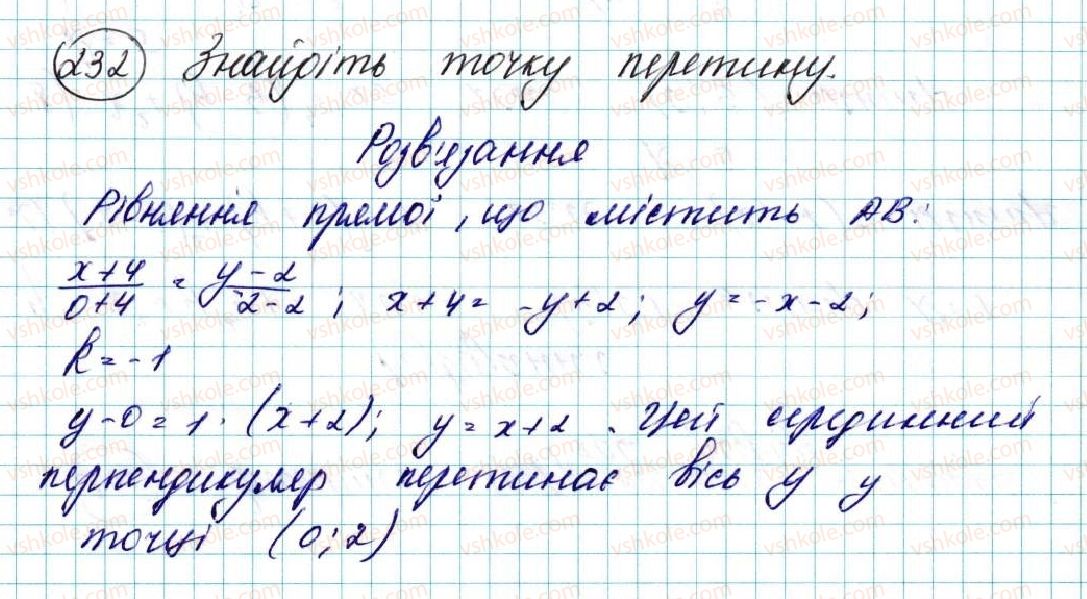 232 Знайдіть точку перетину.
Розв'язання
Рівняння прямої, що містить AB:
x+4/0+4 = y-2/-2-2; x+4= -y+2; y=-x-2;
k=-1
y-0=1·(x+2); y=x+2. Цей серединний
перпендикуляр перетинає вісь y у
точці (0;2)